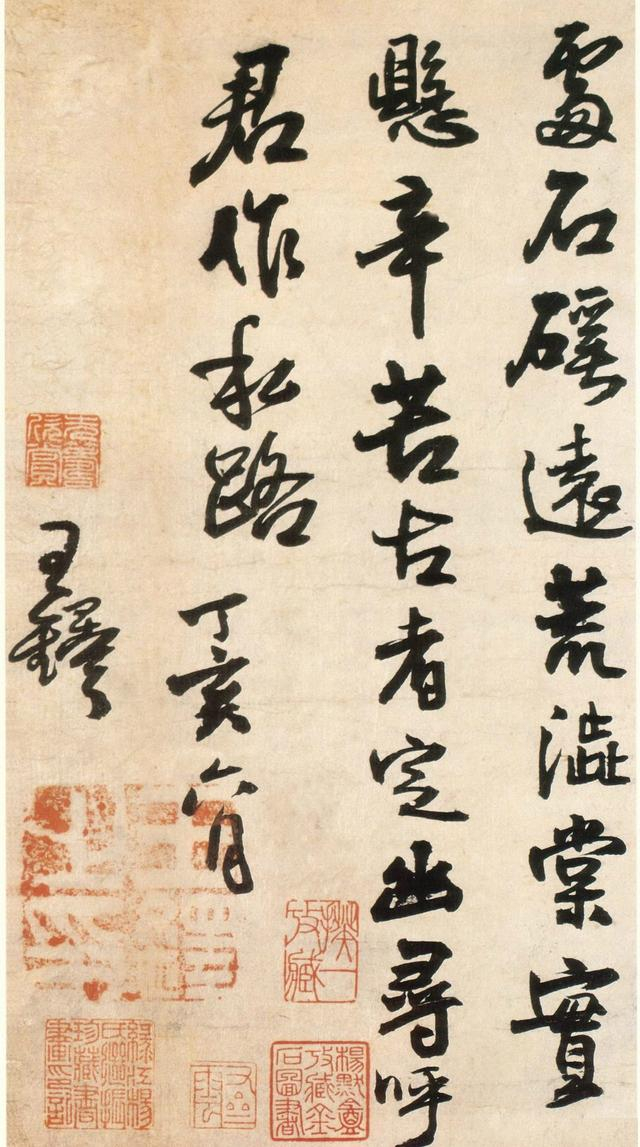 石磘遠荒澀棠實
懸辛苦古者定幽尋呼
君作私路丁亥六月
王鐸